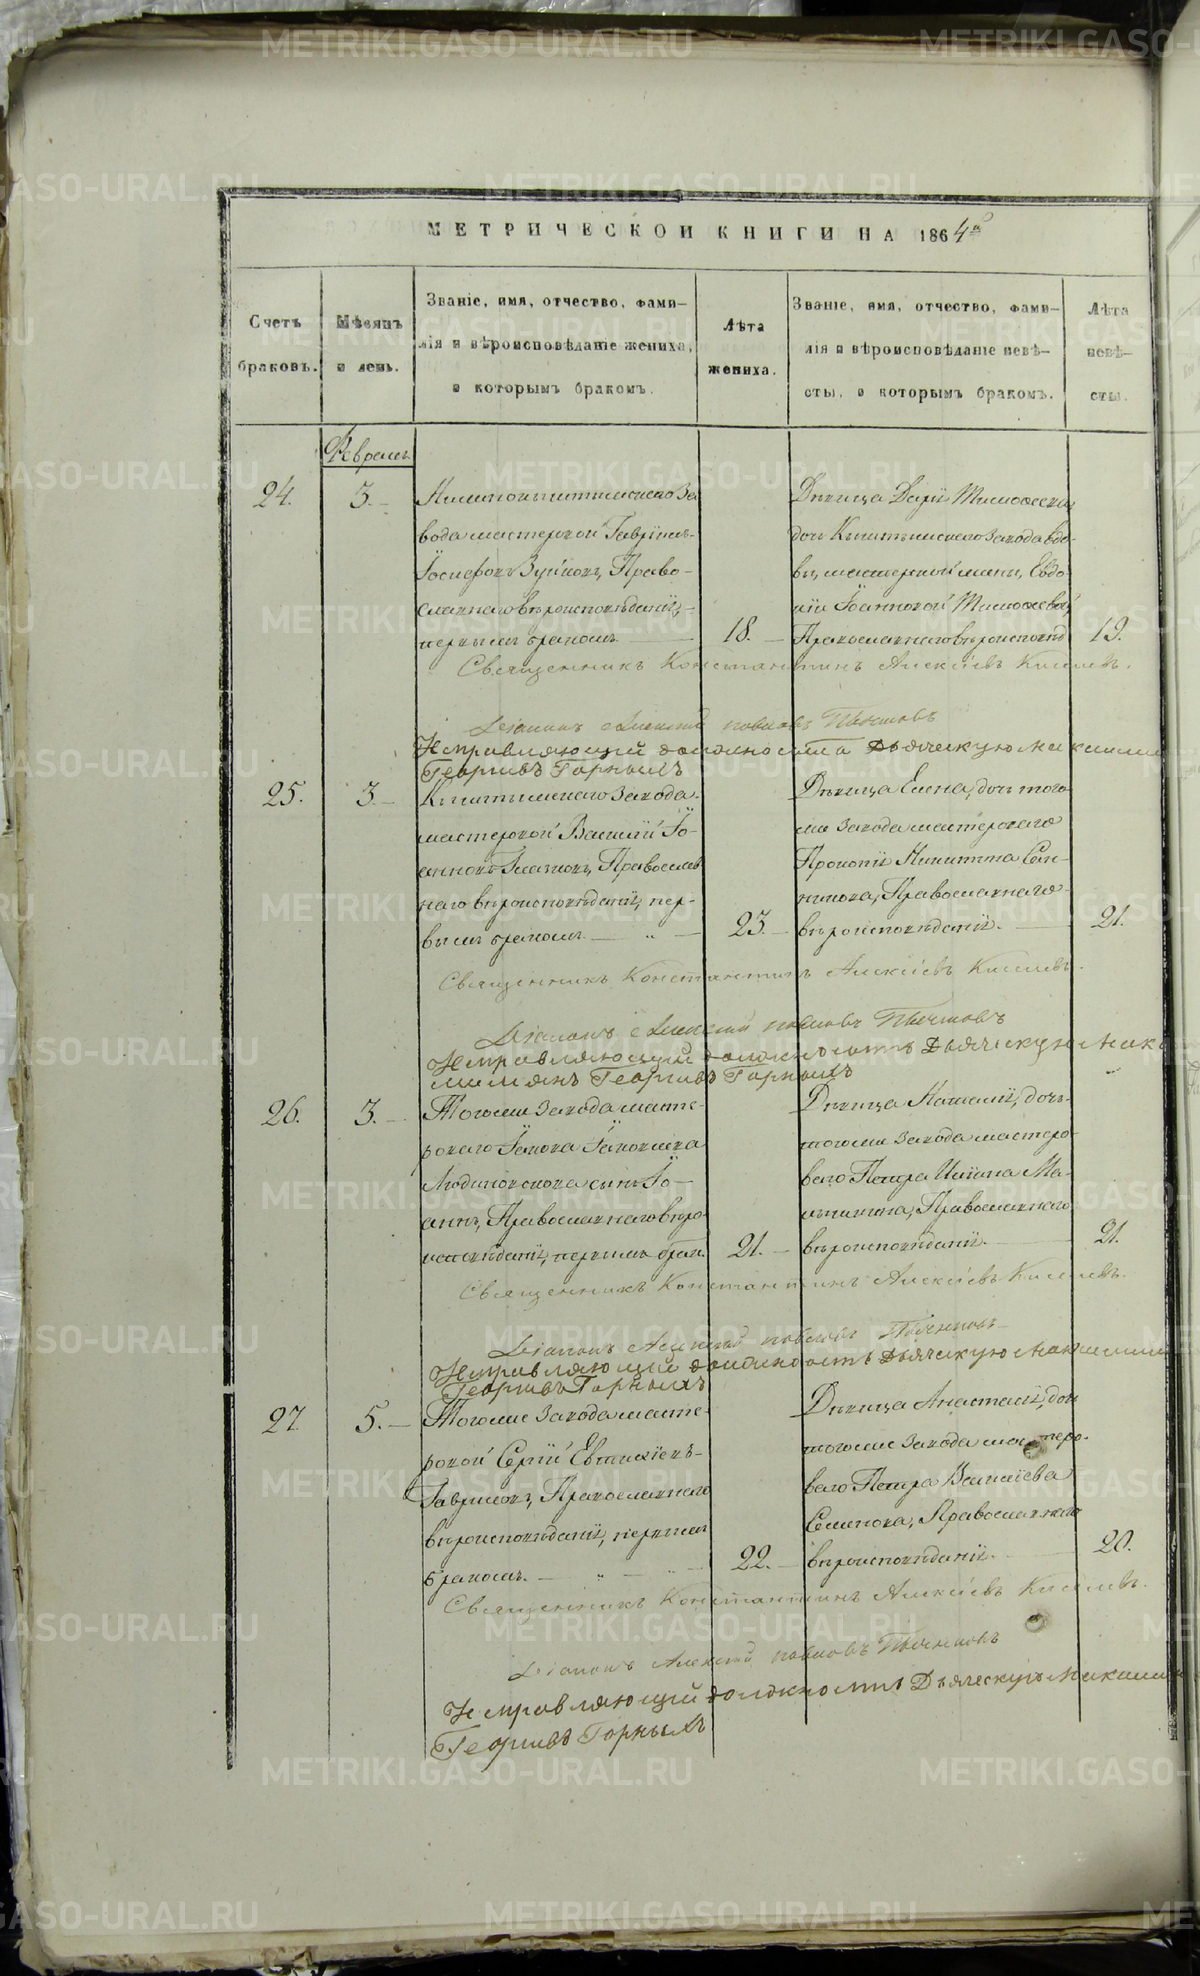 МЕТРИЧЕСКОЙ КНИГИ НА 1864й
Счетъ
браковъ.
Мѣсяцъ
и день.
Званіе, имя, отчество, фами-
лія и вѣроисповѣданіе жениха,
и которымъ бракомъ.
Лѣта
жениха.
Званіе, имя, отчество, фами-
лія и вѣроисповѣданіе невѣ-
сты, и которымъ бракомъ.
Лѣта
невѣ-
сты.
Февраль
24.
3.
вода мастеровой Гавріилъ
Іосифовъ Зуйковъ, Право-
славнаго вѣроисповѣданія,
первымъ бракомъ
18.
Дѣвица Дарія
дочь Кыштымскаго завода вдо-
вы, мастерской жены, Евдо-
кіи Іоанновой
Православнаго вѣроисповѣд
19.
Священникъ Константинъ Алексіевъ Киселевъ.
Діаконъ Алексій Павловъ
Исправляющій должность Дьяческую
Георгіевъ Горныхъ
25.
3.
Кыштымскаго завода
мастеровой Василій Іо-
анновъ Глазковъ, Православ
наго вѣроисповѣданія, пер-
вымъ бракомъ
23.
Дѣвица Елена, дочь того
же завода мастероваго
Прокопія Никитина Сан-
никова, Православнаго
вѣроисповѣданія.
21.
Священникъ Константинъ Алексіевъ Киселевъ.
Діаконъ Алексій Павловъ
Исправляющій должность Дьяческую
Георгіевъ Горныхъ
26.
3.
Тогоже завода масте-
роваго Іакова Іаковлева
сынъ Іо-
аннъ, Православнаго вѣро
исповѣданія, первымъ брак.
21.
Дѣвица Наталія, дочь
тогоже завода мастеро-
ваго Петра
Православнаго
вѣроисповѣданія.
21.
Священникъ Константинъ Алексіевъ Киселевъ.
Діаконъ Алексій Павловъ
Исправляющій должность Дьяческую
Георгіевъ Горныхъ
27
5.
Тогоже завода масте-
ровой Сергій Евтихіевъ
Гавриловъ, Православнаго
вѣроисповѣданія, первымъ
бракомъ.
22.
Дѣвица Анастасія, дочь
тогоже завода мастеро-
ваго Петра Василіева
Православнаго
вѣроисповѣданія.
20.
Священникъ Константинъ Алексіевъ Киселевъ.
Діаконъ Алексій Павловъ
Исправляющій должность Дьяческую
Георгіевъ Горныхъ
METRIKI.GASO-URAL.RU